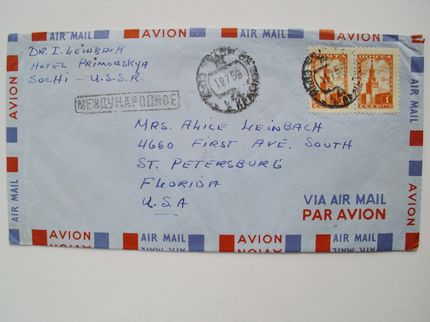 AIR MAIL AVION AIR MAIL AVION AIR MAIL AVION
DR. I. LEINBACH
HOTEL PRIMORSKYA
SOCHI - U.S.S.R.
МЕЖДУНАРОДНОЕ
MRS. ALICE LEINBACH
4660 FIRST AVE. SOUTH
ST. PETERSBURG
FLORIDA
U.S.A
VIA AIR MAIL
PAR AVION
AVION
AIR MAIL
AVION
AIR MAIL
AVION AIR MAIL AVION AIR MAIL AVION AIR MAIL